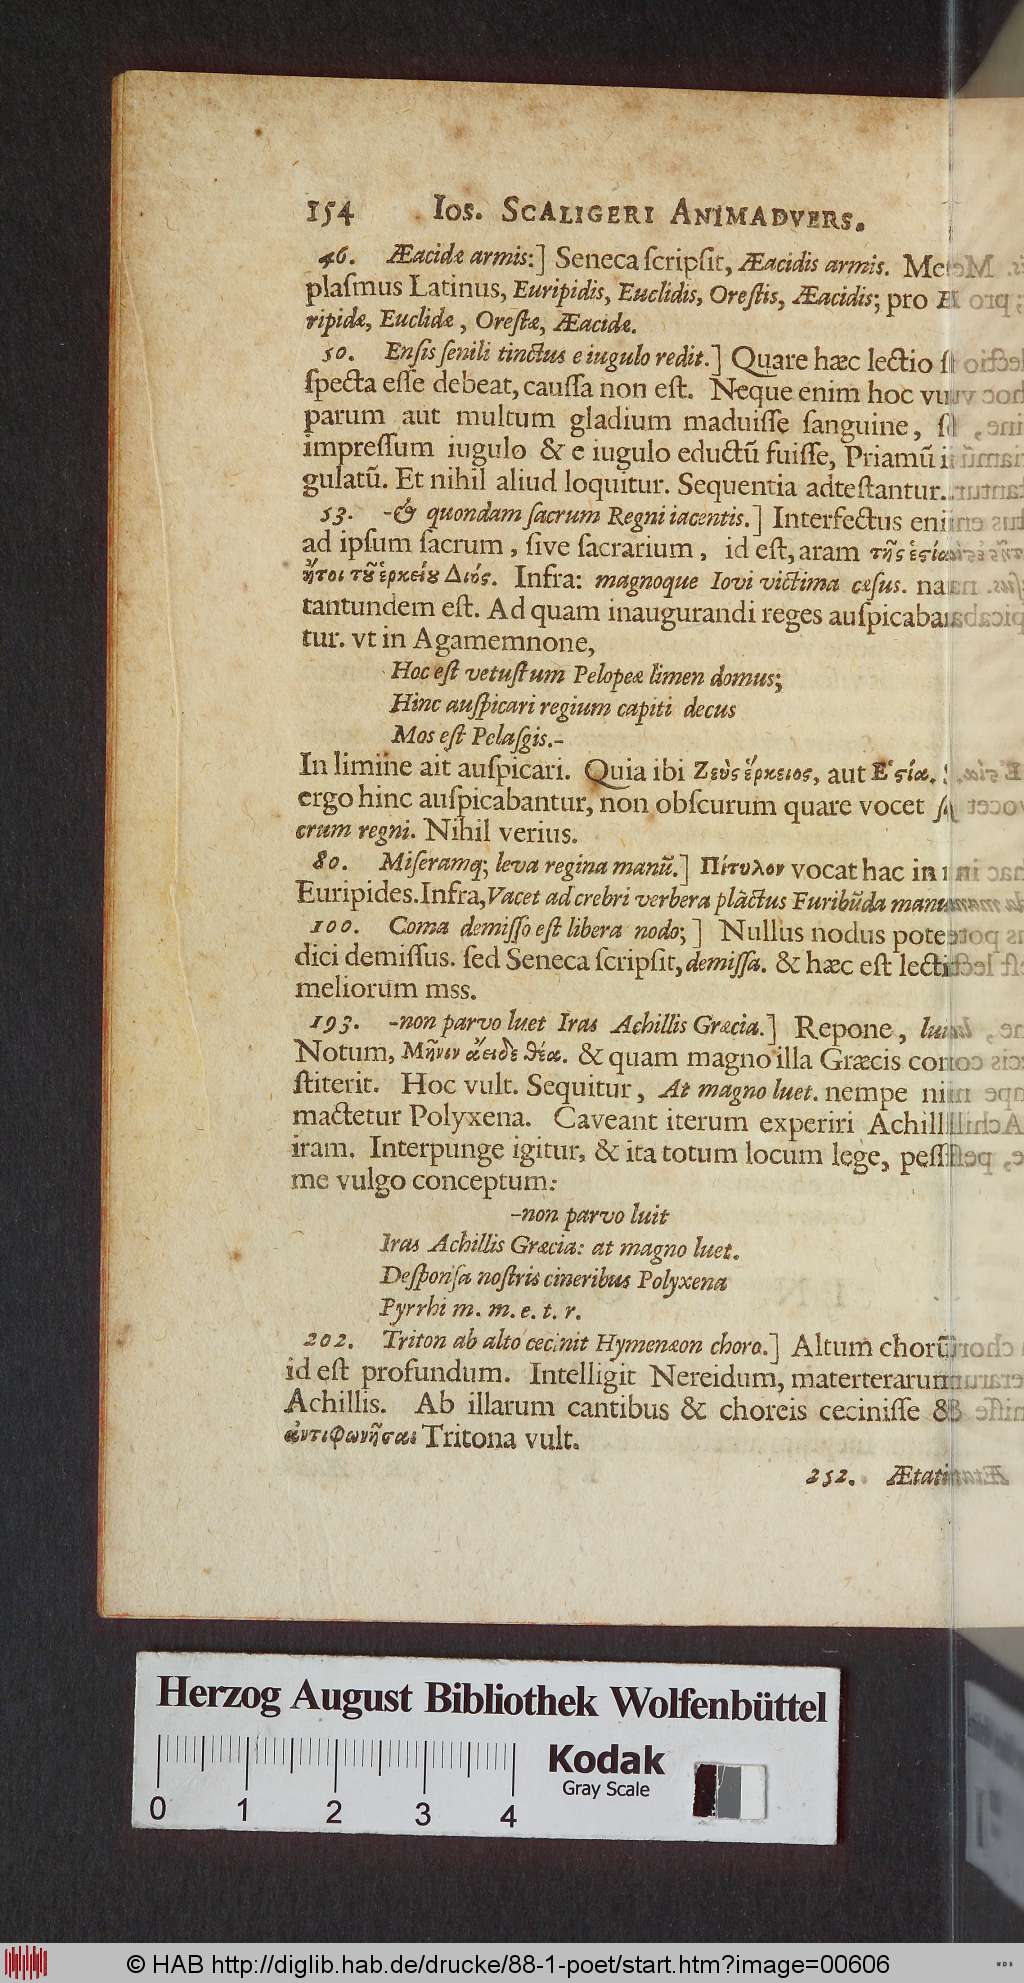 154 Ios. Scaligeri Animadvers.
46. Æacidæ armis:] Seneca ſcripſit, Æacidis armis. Me
plaſmus Latinus, Euripidis, Euclidis, Oreſtis, Æacidis; pro
ripidæ, Euclidæ, Oreſtæ, Æacidæ.
50. Enſis ſenili tinctus e iugulo redit.] Quare hæc lectio
ſpecta eſſe debeat, cauſſa non eſt. Neque enim hoc vu
parum aut multum gladium maduiſſe ſanguine,
impreſſum iugulo & e iugulo eductũ fuiſſe, Priamũ
gulatũ. Et nihil aliud loquitur. Sequentia adteſtantur.
53. -& quondam ſacrum Regni iacentis.] Interfectus eni
ad ipſum ſacrum, ſive ſacrarium, id eſt, aram τῆς ἑςία
ἤτοι τȣ̃ ἑρκείȣ Διός. Infra: magnoque Iovi victima cæſus. na
tantundem eſt. Ad quam inaugurandi reges auſpicaba
tur. vt in Agamemnone,
Hoc eſt vetuſtum Pelopeæ limen domus;
Hinc auſpicari regium capiti decus
Mos eſt Pelaſgis.-
In limine ait auſpicari. Quia ibi Ζεὺς ἕρκειος, aut Ἑςία.
ergo hinc auſpicabantur, non obſcurum quare vocet ſa
crum regni. Nihil verius.
80. Miſeramq; leva regina manũ.] Πίτυλον vocat hac in
Euripides. Infra, Vacet ad crebri verbera plãctus Furibũda manu
100. Coma demiſſo eſt libera nodo;] Nullus nodus pote
dici demiſſus. ſed Seneca ſcripſit, demiſſa. & hæc eſt lecti
meliorum mss.
193. -non parvo luet Iras Achillis Græcia.] Repone, lui
Notum, Μῆνιν ἄειδε θέα. & quam magno illa Græcis con
ſtiterit. Hoc vult. Sequitur, At magno luet. nempe ni
mactetur Polyxena. Caveant iterum experiri Achill
iram. Interpunge igitur, & ita totum locum lege, peſſ
me vulgo conceptum:
-non parvo luit
Iras Achillis Græcia: at magno luet.
Deſponſa noſtris cineribus Polyxena
Pyrrhi m. m. e. t. r.
202. Triton ab alto cecinit Hymenæon choro.] Altum chorũ
id eſt profundum. Intelligit Nereidum, materterarum
Achillis. Ab illarum cantibus & choreis ceciniſſe &
ἀντιφωνῆσαι Tritona vult.
252. Ætati
Herzog August Bibliothek Wolfenbüttel
Kodak
Gray Scale
0 1 2 3 4
© HAB http://diglib.hab.de/drucke/88-1-poet/start.htm?image=00606